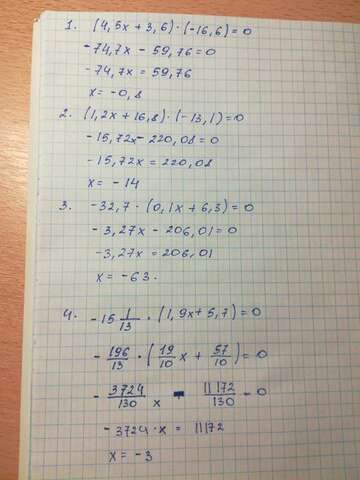 1. (4,5x + 3,6) · (-16,6) = 0
-74,7x - 59,76 = 0
-74,7x = 59,76
x = -0,8
2. (1,2x + 16,8) · (-13,1) = 0
-15,72x - 220,08 = 0
-15,72x = 220,08
x = -14
3. -32,7 · (0,1x + 6,3) = 0
-3,27x - 206,01 = 0
-3,27x = 206,01
x = -63.
4. -15 1/13 · (1,9x + 5,7) = 0
-196/13 · (19/10 x + 57/10) = 0
-3724/130 x - 11172/130 = 0
-3724 · x = 11172
x = -3